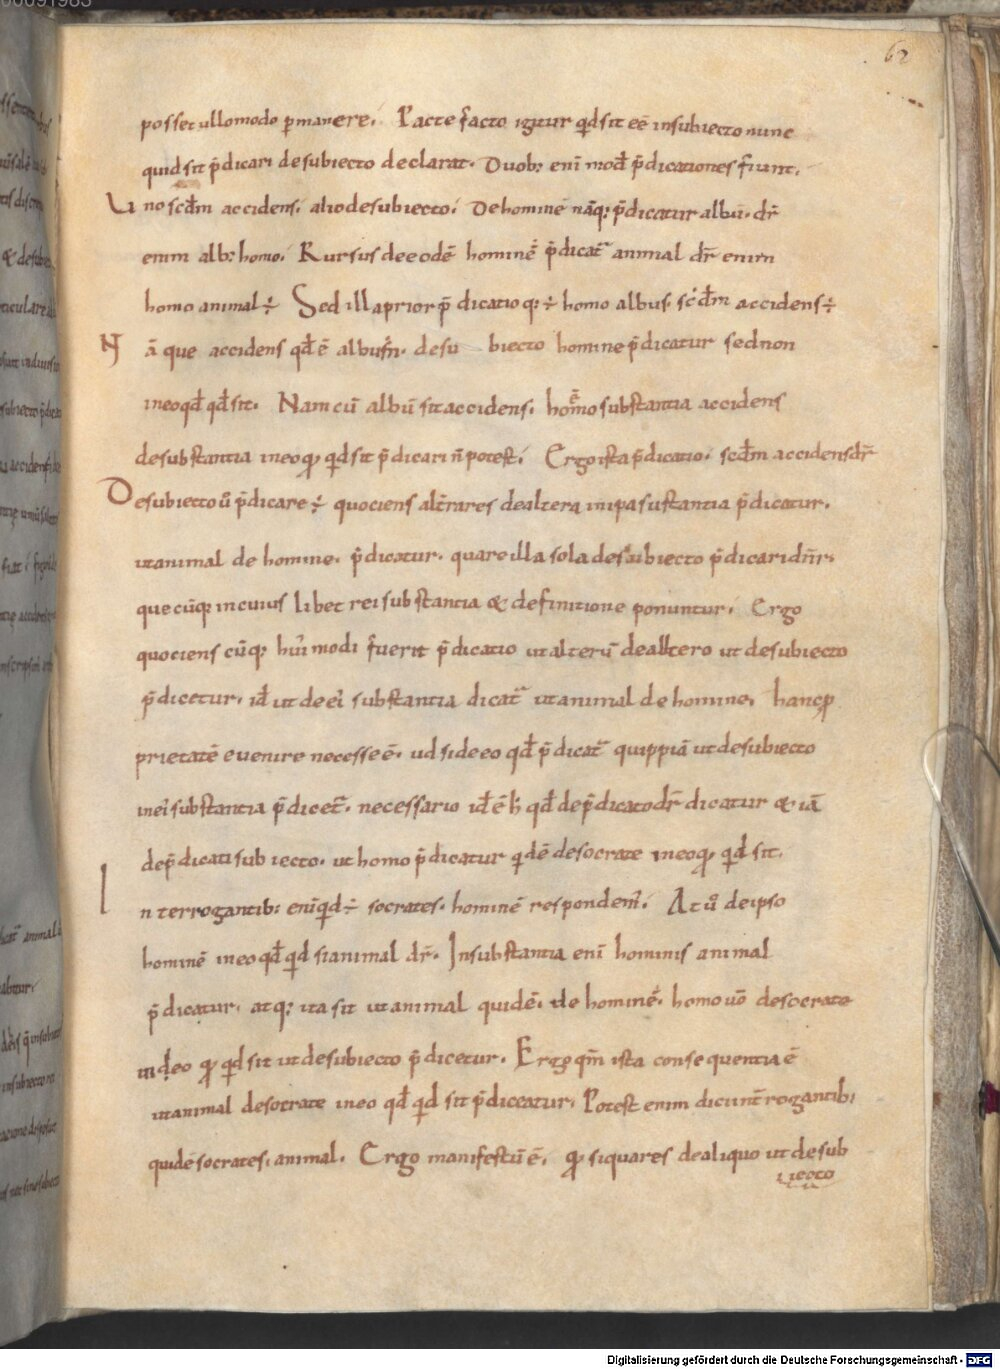 62
posset ullomodo p̄manere. Pacte facto igitur qd̄ sit eē insubiecto nunc
quid sit p̄dicari desubiecto declarat. Duob: eni mod̄ p̄dicationes fiunt.
Uno scdm̄ accidens. alio desubiecto. De hominē nāq: p̄dicatur albū. dr̄
enim alb: homo. Rursus de eodē hominē p̄dicat̄ animal dr̄ enim
homo animal ÷ Sed illa prior p̄dicatio q: ÷ homo albus. scdm̄ accidens ÷
Nā que accidens qd̄ ē albus̄. desu biecto homine p̄dicatur sed non
ineo qd̄ qd̄ sit. Nam cū albū sit accidens. homo substantia accidens
desubstantia ineo qd̄ sit p̄dicari n̄ potest. Ergo ista p̄dicatio. scdm̄ accidens dr̄
Desubiecto ū p̄dicare ÷ quociens alt̄rares dealtera inipa sustantia p̄dicatur.
ut animal de homine. p̄dicatur. quare illa sola desubiecto p̄dicari dn̄r.
que cūq: incuius libet rei substantia & definitione ponuntur. Ergo
quociens cūq: hui modi fuerit p̄dicatio ut alterū dealtero ut desubiecto
p̄dicetur. id̄ ut de ei substantia dicat̄ ut animal de homine. hanc p
prietatē evenire necesse ē. ud si de eo qd̄ p̄dicat̄ quippiā ut desubiecto
inei substantia p̄dicet̄. necessario id̄ ē h qd̄ de p̄dicato dr̄ dicatur & iā
de p̄dicati subiecto. ut homo p̄dicatur qdē desocrate ineo q qd̄ sit.
Interrogantib: eni qd̄ ÷ socrates. hominē respondem̄. At ū de ipso
hominē ineo qd̄ qd̄ si animal dr̄. Insubstantia eni hominis animal
p̄dicatur. atq: ita sit ut animal quidē. de hominē. homo uō desocrate
indeo q qd̄ sit ut desubiecto p̄dicetur. Ergo qm̄ ista consequentia ē
ut animal desocrate ineo qd̄ qd̄ sit p̄diceatur. Potest enim dici int̄rogantib:
quidē socrates. animal. Ergo manifestū ē. q siquares dealiquo ut desub
iecto
Digitalisierung gefördert durch die Deutsche Forschungsgemeinschaft - DFG